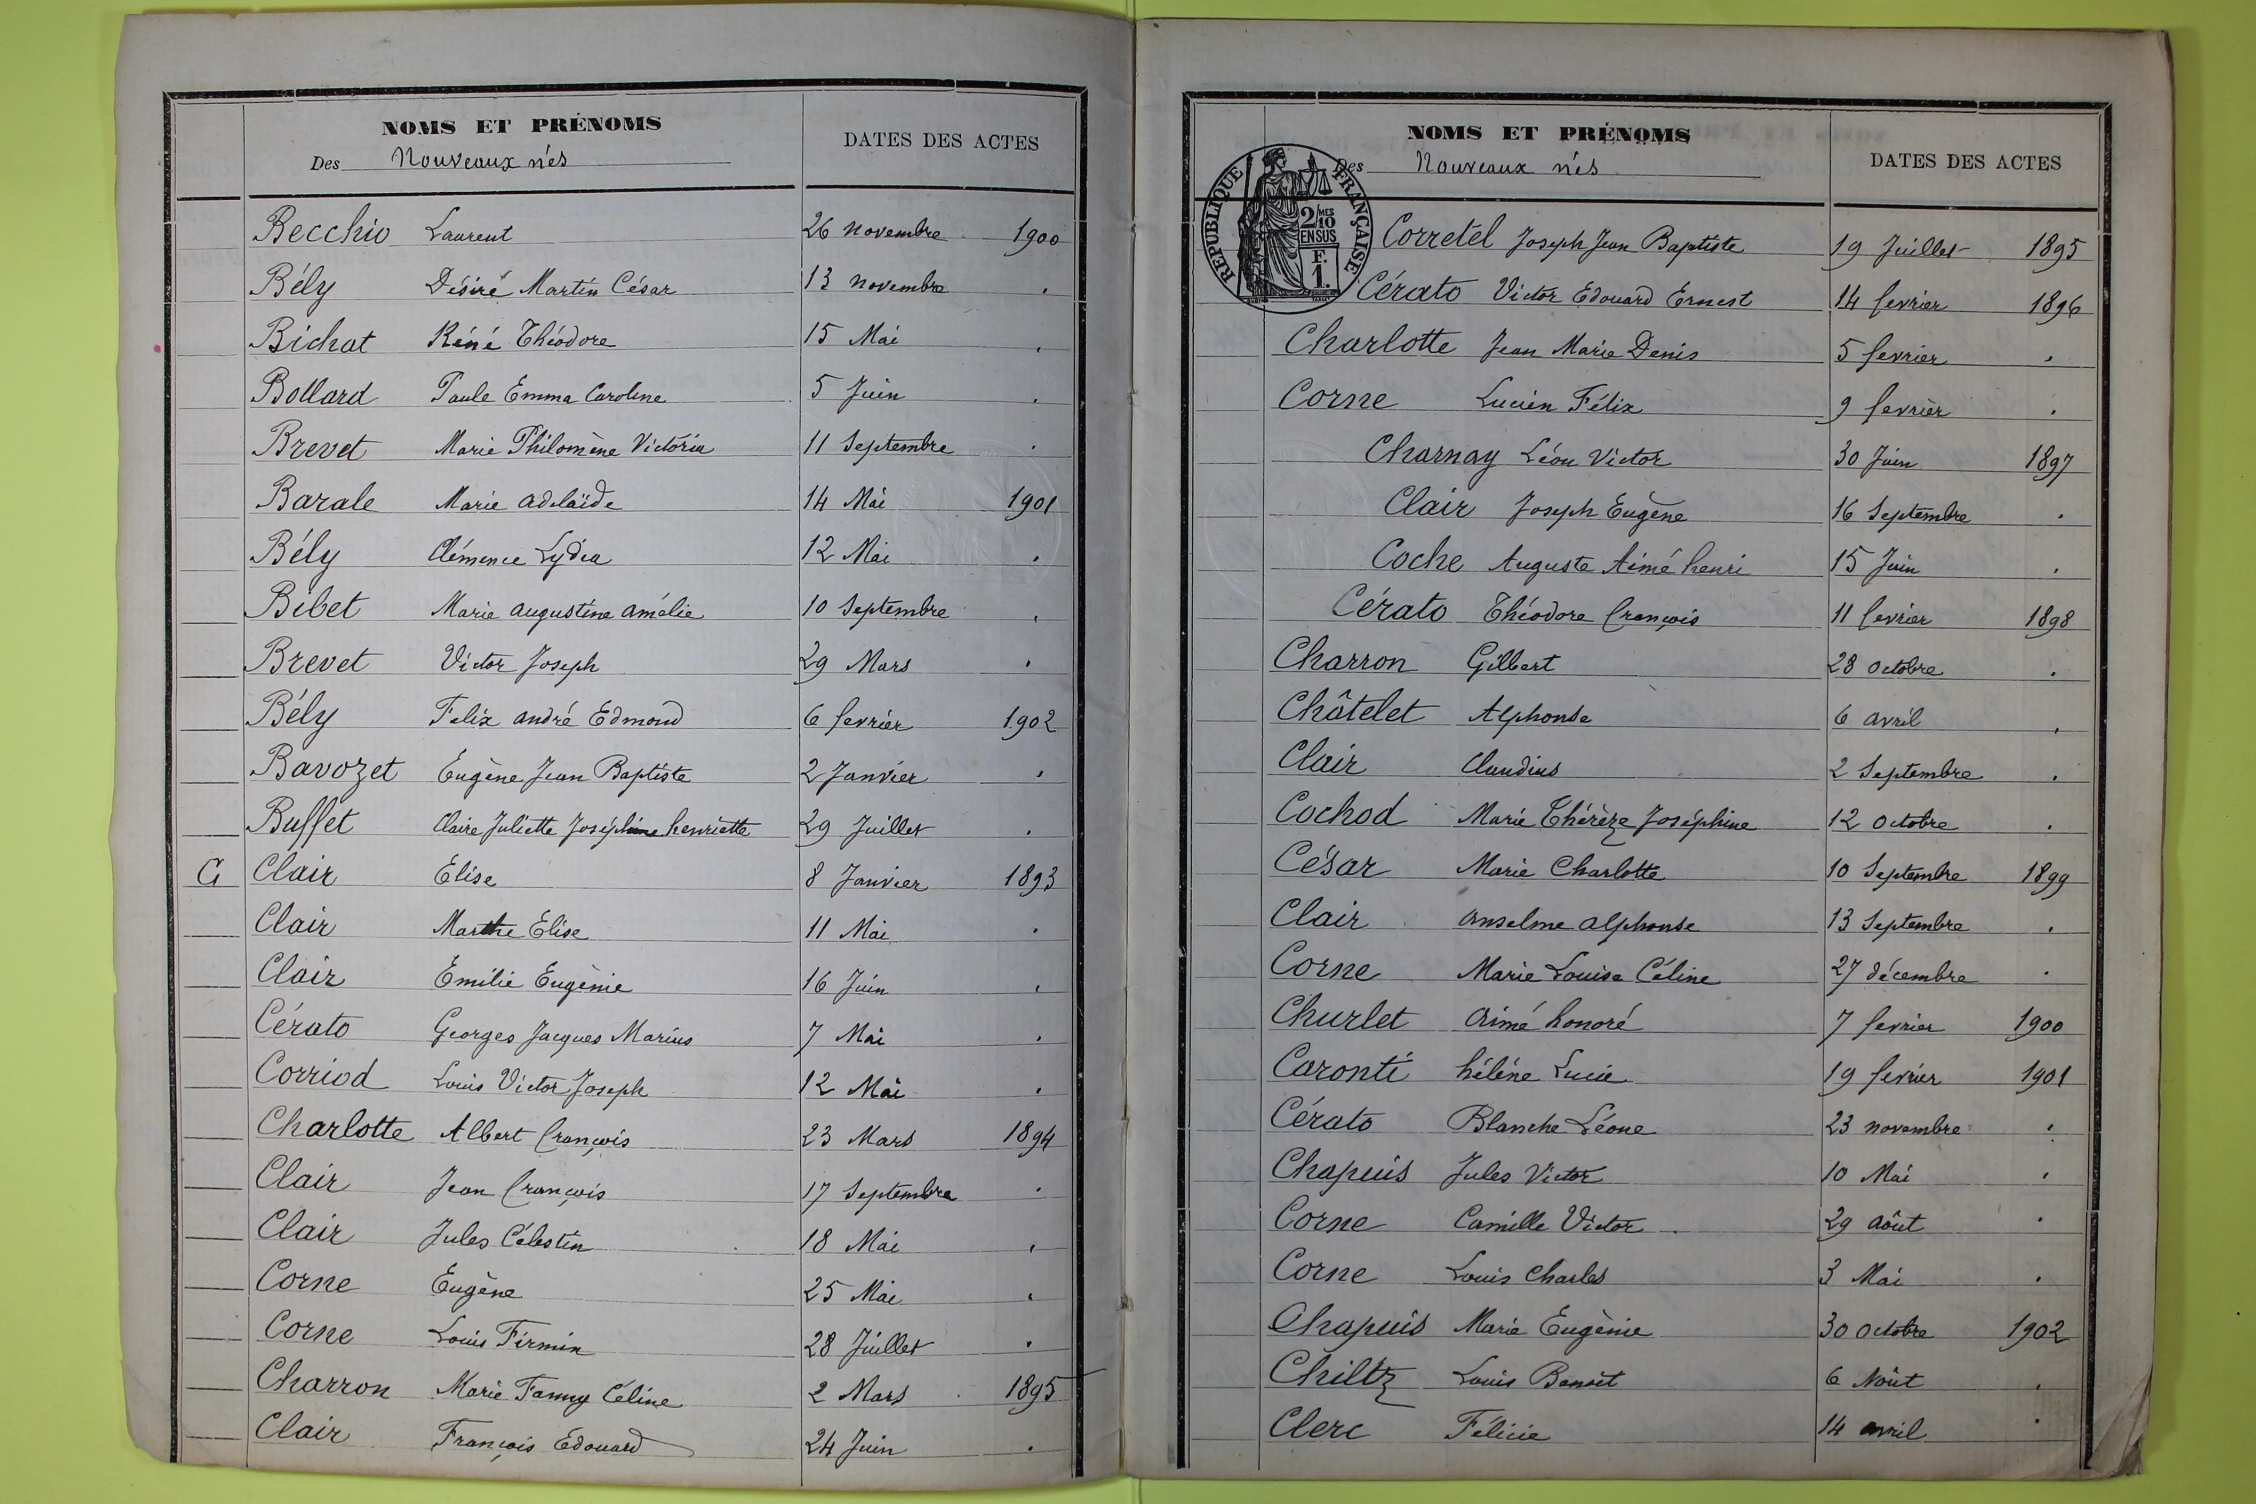 NOMS ET PRÉNOMS
Des Nouveaux nés
DATES DES ACTES
Becchio Laurent 26 novembre 1900
Bély Désiré Martin César 13 novembre .
Bichat Réné Théodore 15 Mai .
Bollard Paule Emma Caroline 5 Juin .
Brevet Marie Philomène Victória 11 Septembre .
Barale Marie adelaïde 14 Mai 1901
Bély Clémence Lydia 12 Mai .
Bibet Marie augustine amélie 10 Septembre .
Brevet Victor Joseph 29 Mars .
Bély Felix andré Edmond 6 fevrier 1902
Bavozet Eugène Jean Baptiste 2 Janvier .
Buffet Claire Juliette Joséphine henriette 29 Juillet .
C Clair Elise 8 Janvier 1893
Clair Marthe Elise 11 Mai .
Clair Emilie Eugènie 16 Juin .
Cérato Georges Jacques Marius 7 Mai .
Corriod Louis Victor Joseph 12 Mai .
Charlotte Albert François 23 Mars 1894
Clair Jean François 17 Septembre .
Clair Jules Célestin 18 Mai .
Corne Eugène 25 Mai .
Corne Louis Firmin 28 Juillet .
Charron Marie Fanny Céline 2 Mars 1895
Clair François Edouard 24 Juin .
NOMS ET PRÉNOMS
Des Nouveaux nés
DATES DES ACTES
RÉPUBLIQUE FRANÇAISE
2/10 MES
EN SUS
F.
1.
Corretel Joseph Jean Baptiste 19 Juillet 1895
Cérato Victor Edouard Ernest 14 fevrier 1896
Charlotte Jean Marie Denis 5 fevrier .
Corne Lucien Félix 9 fevrier .
Charnay Léon Victor 30 Juin 1897
Clair Joseph Eugène 16 Septembre .
Coche Auguste Aimé henri 15 Juin .
Cérato Théodore François 11 fevrier 1898
Charron Gilbert 28 octobre .
Châtelet Alphonse 6 avril .
Clair Claudius 2 Septembre .
Cochod Marie Thérèze Joséphine 12 octobre .
César Marie Charlotte 10 Septembre 1899
Clair anselme alphonse 13 Septembre .
Corne Marie Louise Céline 27 décembre .
Churlet aimé honoré 7 fevrier 1900
Caronti hélène Lucie 19 fevrier 1901
Cérato Blanche Léone 23 novembre .
Chapuis Jules Victor 10 Mai .
Corne Camille Victor 29 août .
Corne Louis Charles 3 Mai .
Chapuis Marie Eugènie 30 octobre 1902
Chiltz Louis Benoit 6 Août .
Clerc Félicie 14 avril .